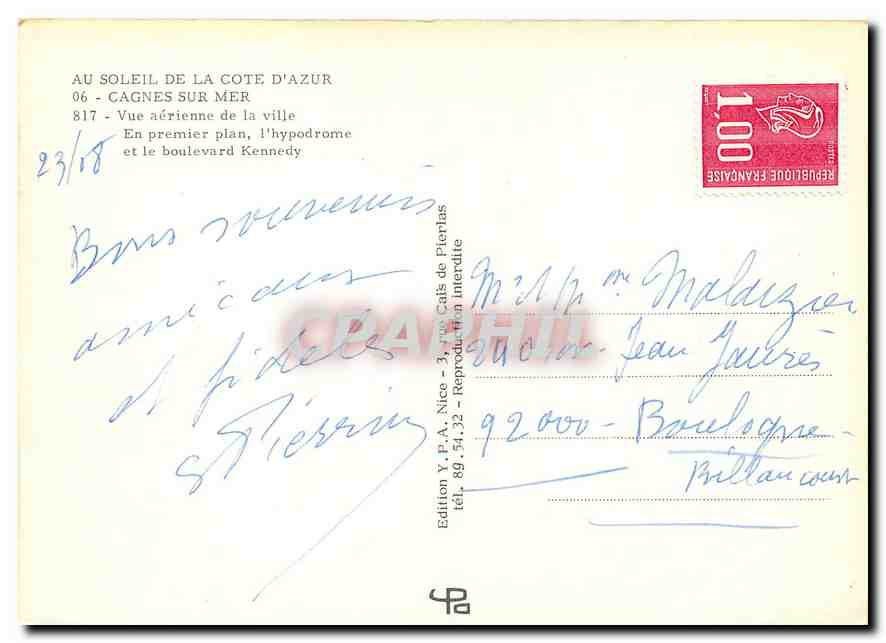 AU SOLEIL DE LA COTE D'AZUR
06 - CAGNES SUR MER
817 - Vue aérienne de la ville
En premier plan, l'hypodrome
et le boulevard Kennedy
23/08
Bons souvenirs
amicaux
et fidèles
Edition Y.P.A. Nice - 3, rue Caïs de Pierlas
tél. 89.54.32 - Reproduction interdite
1,00
POSTES
REPUBLIQUE FRANÇAISE
CPAPHIL
Jean Jaurès
92000 - Boulogne-
Billancourt